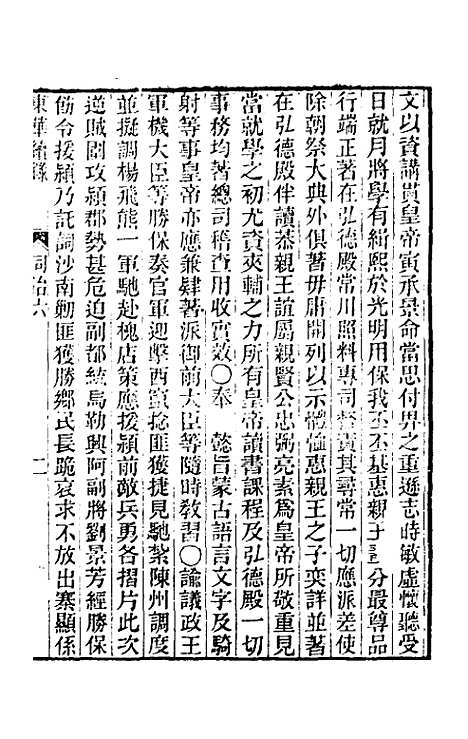 文以資講貫皇帝寅承景命當思付畀之重遜志時敏虛懷聽受
日就月將學有緝熙於光明用保我丕丕基惠親王誼分最尊品
行端正著在弘德殿常川照料專司督責其尋常一切應派差使
除朝祭大典外俱著毋庸開列以示體恤惠親王之子奕詳並著
在弘德殿伴讀恭親王誼屬親賢公忠弼亮素為皇帝所敬重見
當就學之初尤資夾輔之力所有皇帝讀書課程及弘德殿一切
事務均著總司稽查用收實效〇奉 懿旨蒙古語言文字及騎
射等事皇帝亦應兼肄著派御前大臣等隨時教習〇諭議政王
軍機大臣等勝保奏官軍迎擊西竄捻匪獲捷見馳紮陳州調度
並擬調楊飛熊一軍馳赴槐店策應援潁前敵兵勇各摺片此次
逆賊圍攻潁郡勢甚危迫副都統烏勒興阿副將劉景芳經勝保
飭令援潁乃託詞沙南勦匪獲勝鄉民長跪哀求不放出寨顯係
東華續錄 同治六 二